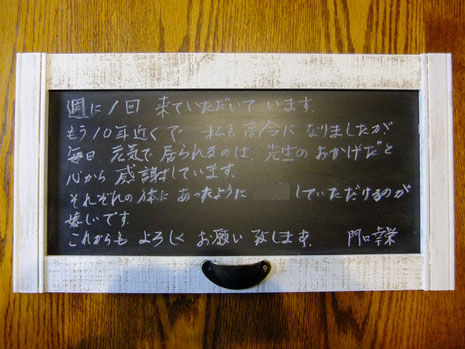 週に1回 来ていただいています
もう10年近くで 私も高令になりましたが
毎日 元気で居られるのは、先生のおかげだと
心から 感謝しています。
それぞれの体にあったように していただけるのが
嬉しいです
これからも よろしく お願い致します。 門口幸栄